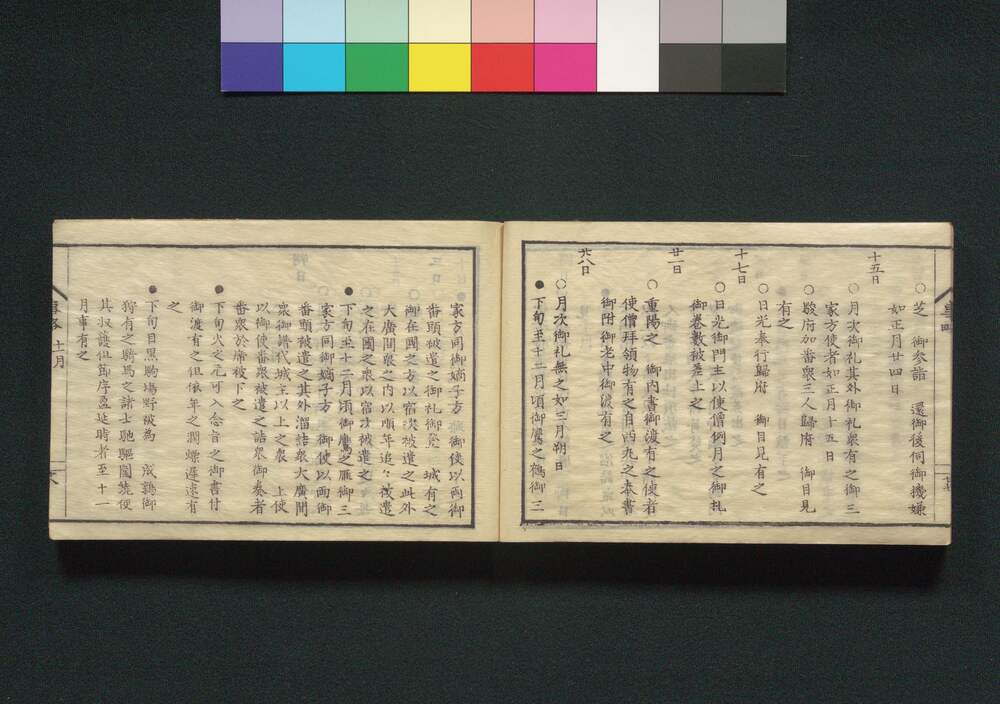 ○芝 御参詣 還御後伺御機嫌
如正月廿四日
十五日
○月次御礼其外御礼衆有之御三
家方使者如正月十五日
○駿府加番衆三人歸府 御目見
有之
○日光奉行歸府 御目見有之
十七日
○日光御門主以使僧例月之御札
御卷數被差上之
廿一日
○重陽之 御内書御渡有之使者
使僧拜領物有之自西丸之奉書
御附御老中御渡有之
廿八日
○月次御礼無之如三月朔日
●下旬至十二月頃御鷹之鶴御三
家方同御嫡子方 御使以両御
番頭被遣之御礼御登 城有之
○御在國之方以宿次被遣之此外
大廣間衆之内以順年追々被遣
之在國之衆以宿次被遣之
●下旬至十二月頃御鷹之雁御三
家方同御嫡子方 御使以両御
番頭被遣之其外溜詰衆大廣間
衆御譜代城主以上之衆 上使
以御使番衆被遣之詰衆御奏者
番衆於席被下之
●下旬火之元可入念旨之御書付
御渡有之但依年之潤燥遅速有
之
●下旬目黒駒場野被為 成鶉御
狩有之騎馬之諸士馳驅圍
其
月事有之
十一月